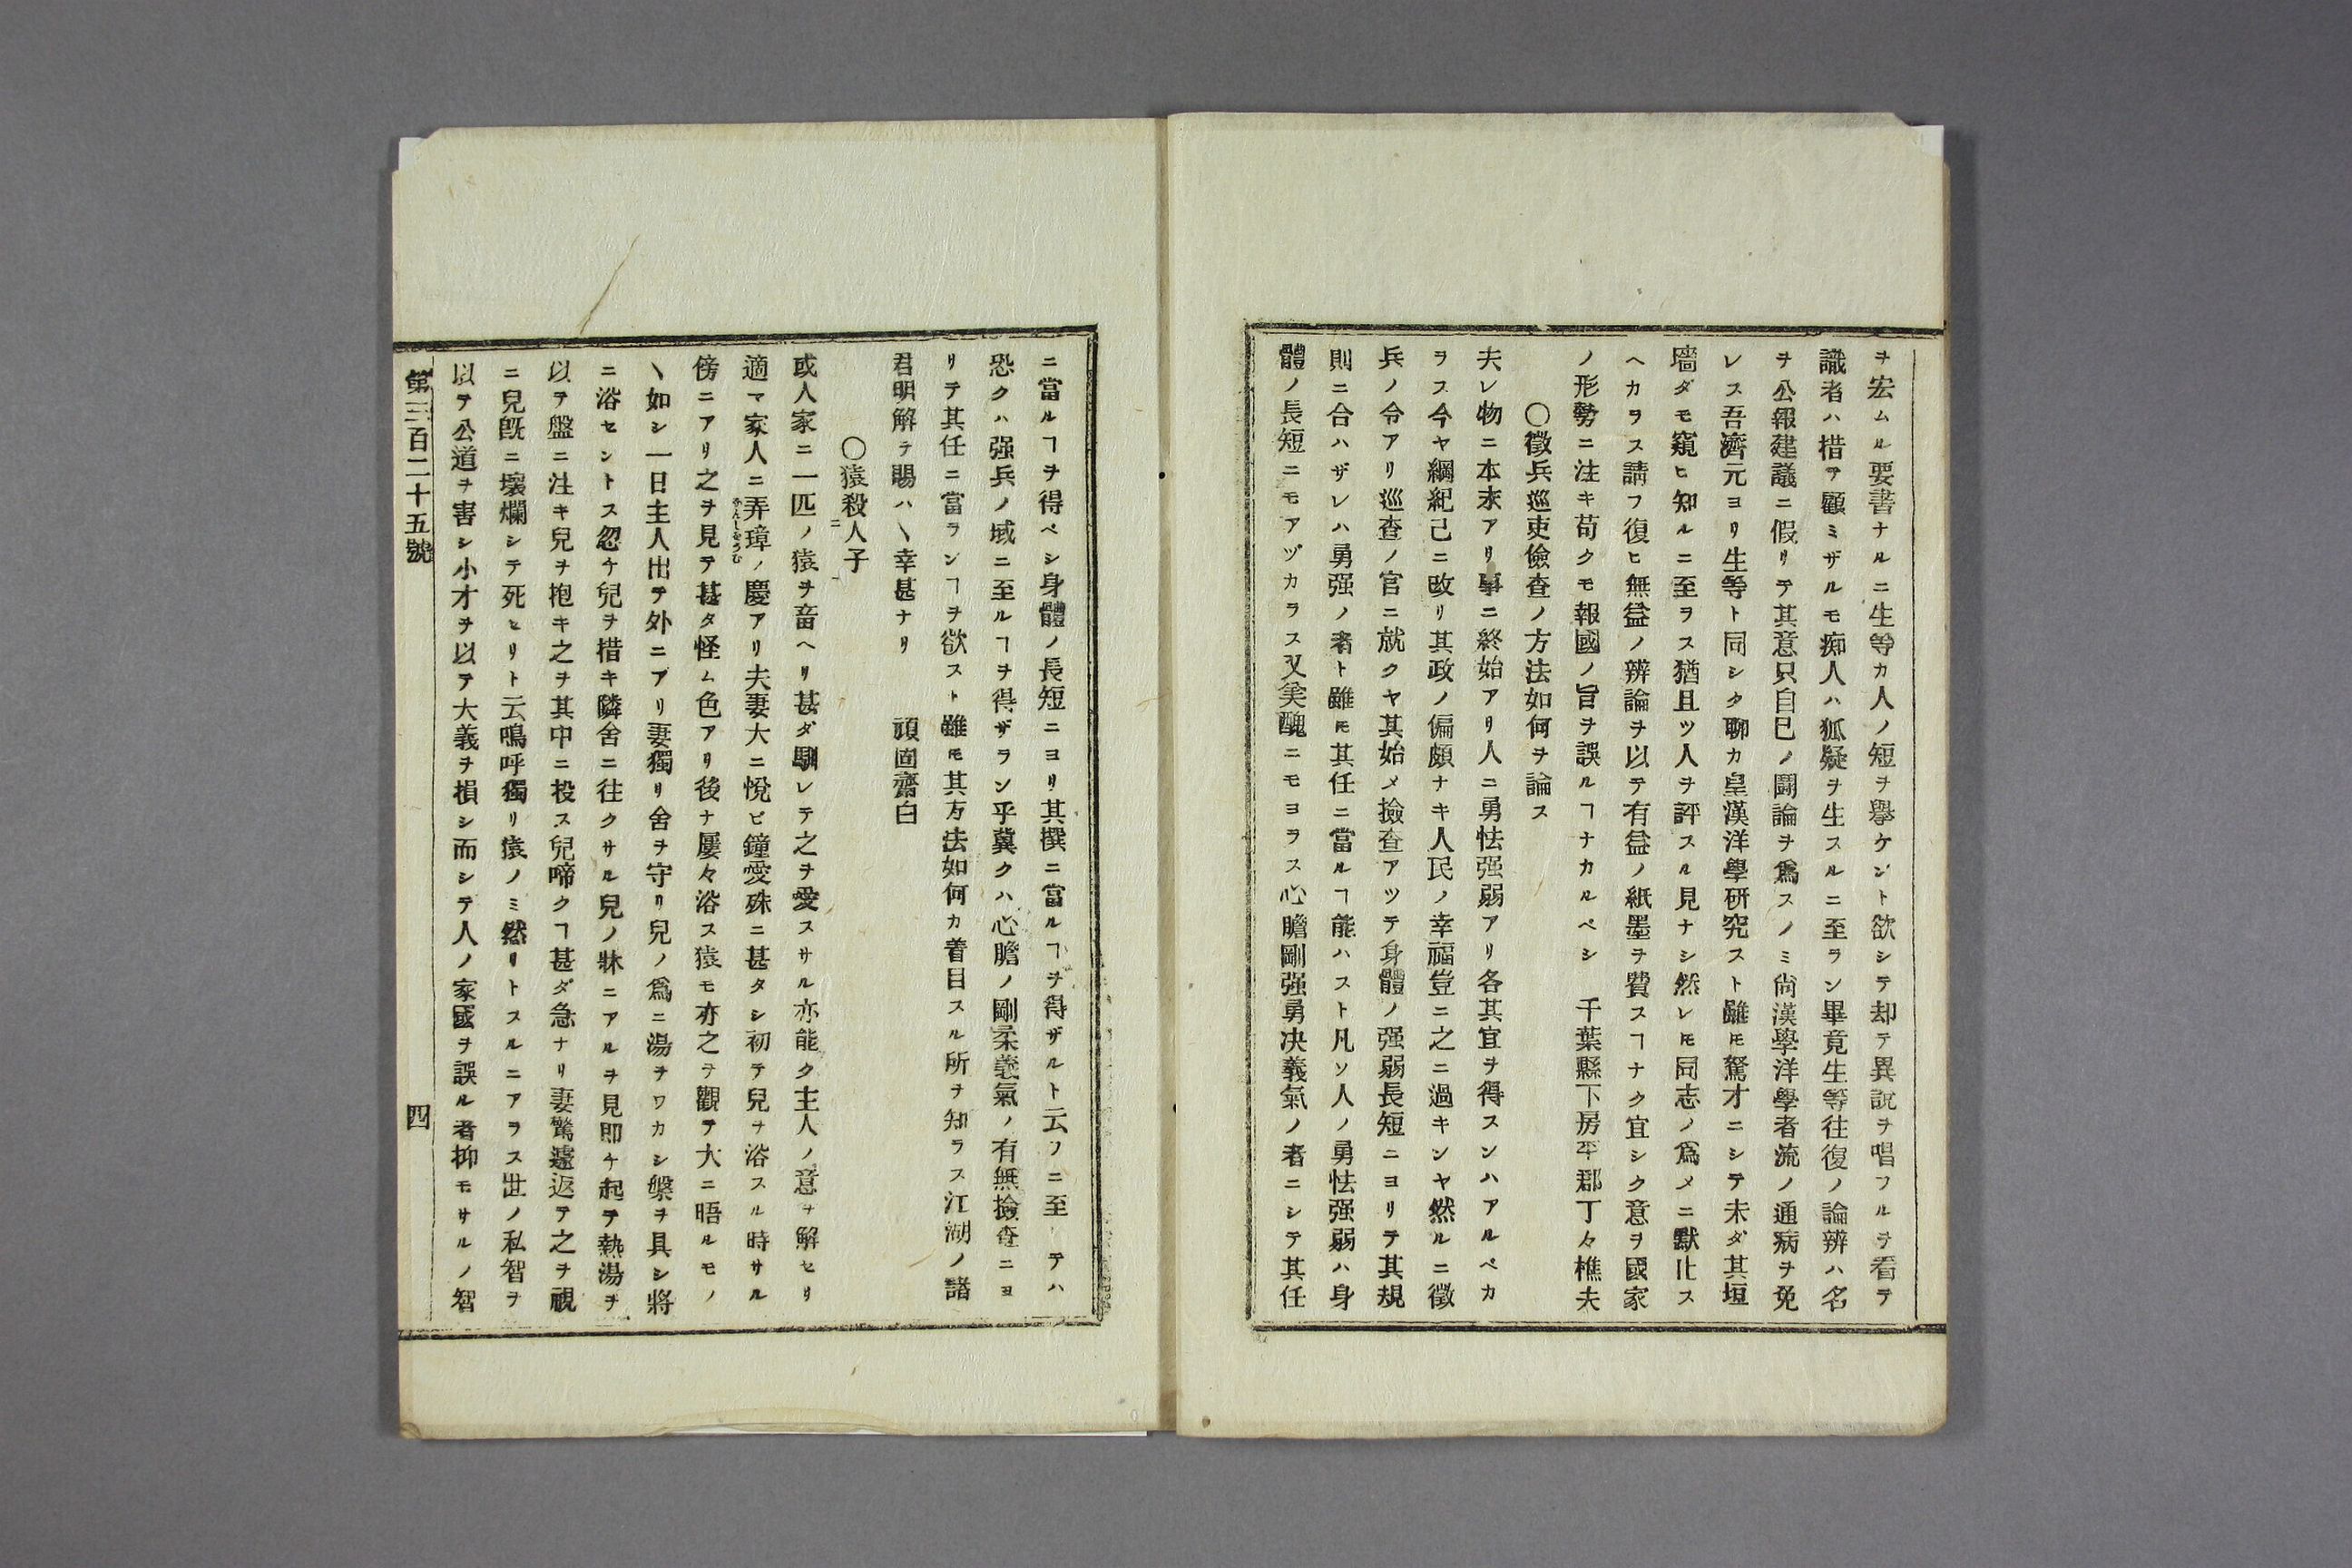 ヲ宏ムル要書ナルニ生等カ人ノ短ヲ擧ケント欲シテ却テ異說ヲ唱フルヲ看テ
識者ハ措テ顧ミザルモ痴人ハ狐疑ヲ生スルニ至ラン畢竟生等往復ノ論辨ハ名
ヲ公報建議ニ假リテ其意只自己ノ鬪論ヲ爲スノミ尙漢學洋學者流ノ通病ヲ免
レス吾濟元ヨリ生等ト同シク聊カ皇漢洋學硏究スト雖モ駑才ニシテ未ダ其垣
墻ダモ窺ヒ知ルニ至ラス猶且ツ人ヲ評スル見ナシ然レ𪜈同志ノ爲メニ默止ス
ヘカラス請フ復ヒ無益ノ辨論ヲ以テ有益ノ紙墨ヲ費スヿナク宜シク意ヲ國家
ノ形勢ニ注キ苟クモ報國ノ旨ヲ誤ルヿナカルベシ　千葉縣下房平郡丁々樵夫
〇徵兵巡吏儉査ノ方法如何ヲ論ス
夫レ物ニ本末アリ事ニ終始アリ人ニ勇怯强弱アリ各其宜ヲ得スンハアルベカ
ラス今ヤ綱紀己ニ改リ其政ノ偏頗ナキ人民ノ幸福豈ニ之ニ過キンヤ然ルニ徵
兵ノ令アリ巡査ノ官ニ就クヤ其始メ撿査アツテ身體ノ强弱長短ニヨリテ其規
則ニ合ハザレハ勇强ノ者ト雖𪜈其任ニ當ルヿ能ハスト凡ソ人ノ勇怯强弱ハ身
體ノ長短ニモアヅカラス又美醜ニモヨラス心膽剛强勇决義氣ノ者ニシテ其任
ニ當ルヿヲ得ベシ身體ノ長短ニヨリ其撰ニ當ルヿヲ得ザルト云フニ至テハ
恐クハ强兵ノ域ニ至ルヿヲ得ザラン乎冀クハ心膽ノ剛柔義氣ノ有無撿査ニヨ
リテ其任ニ當ランヿヲ欲スト雖𪜈其方法如何カ着目スル所ヲ知ラス江湖ノ諸
君明解テ賜ハヽ幸甚ナリ　　頑固齋白
〇猿殺人子
或人家ニ一匹ノ猿ヲ畜ヘリ甚ダ馴レテ之ヲ愛スサル亦能ク主人ノ意ヲ解セリ
適マ家人ニ弄璋ノ慶アリ夫妻大ニ悅ビ鐘愛殊ニ甚タシ初テ兒ヲ浴スル時サル
傍ニアリ之ヲ見テ甚タ怪ム色アリ後ナ屢々浴ス猿モ亦之ヲ觀テ大ニ晤ルモノ
ヽ如シ一日主人出テ外ニアリ妻獨リ舍ヲ守リ兒ノ爲ニ湯ヲワカシ槃ヲ具シ將
ニ浴セントス忽チ兒ヲ措キ隣舍ニ往クサル兒ノ牀ニアルヲ見即チ起テ熱湯ヲ
以テ盤ニ注キ兒ヲ抱キ之ヲ其中ニ投ス兒啼クヿ甚ダ急ナリ妻驚遽返テ之ヲ視
ニ兒旣ニ壞爛シテ死セリト云嗚呼獨リ猿ノミ然リトスルニアラス世ノ私智ヲ
以テ公道ヲ害シ小才ヲ以テ大義ヲ損シ而シテ人ノ家國ヲ誤ル者抑モサルノ智
第三百二十五號　四